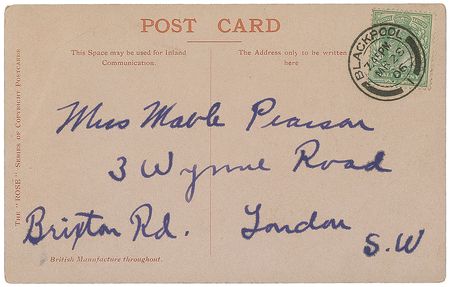 POST CARD
This Space may be used for Inland Communication.
The Address only to be written here
BLACKPOOL
THE "ROSE" SERIES OF COPYRIGHT POSTCARDS
Miss Mable Pearson
3 Wynne Road
Brixton Rd. London
S.W
British Manufacture throughout.